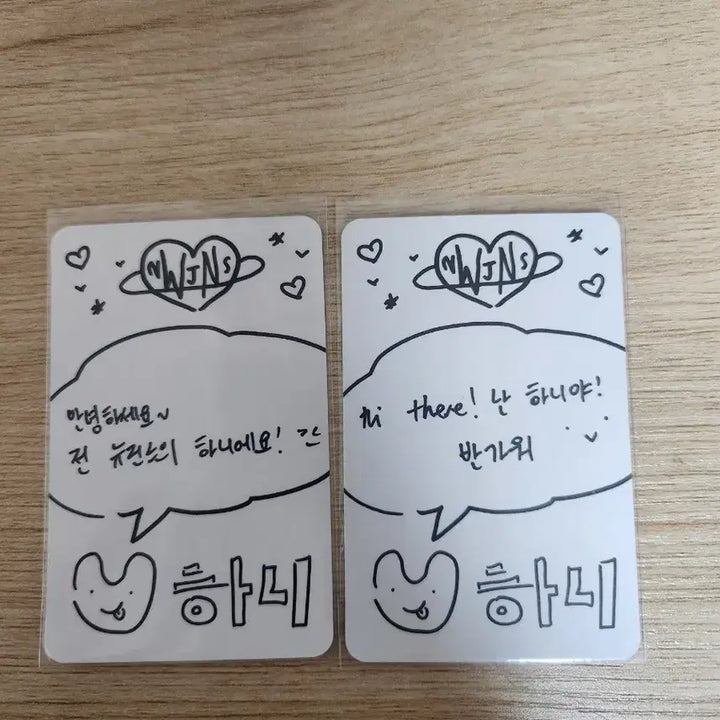 NWJNS
안녕하세요~
전 뉴진스의 하니에요! 간
하니
NWJNS
hi there! 난 하니야!
반가워
하니